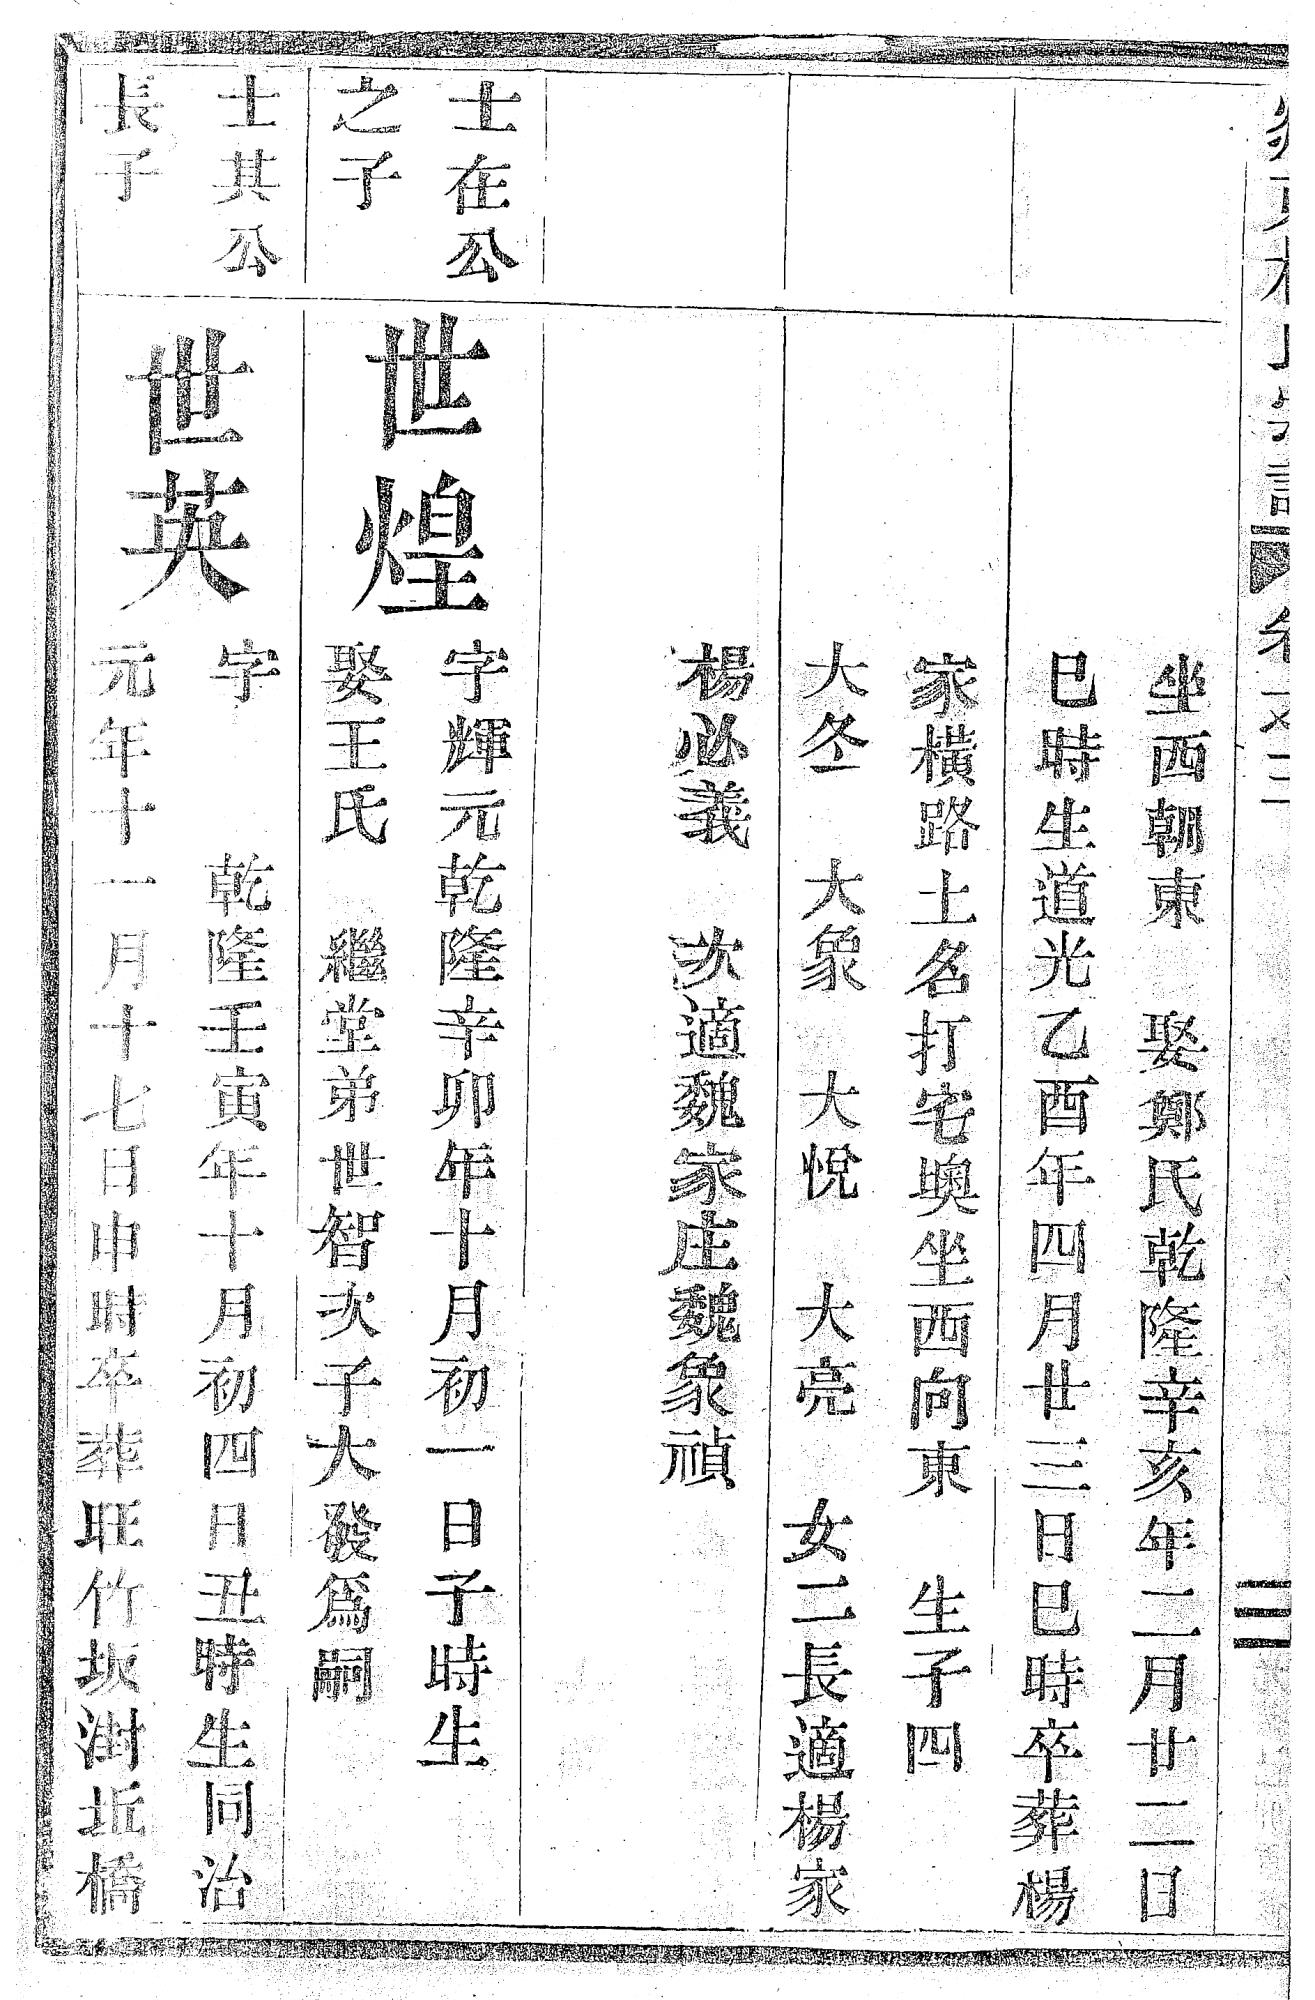 坐西朝東　娶鄭氏乾隆辛亥年二月廿二日
巳時生道光乙酉年四月廿三日巳時卒葬楊
家橫路土名打宅墺坐西向東　生子四
大冬　大象　大悅　大亮　女二長適楊家
楊必義　次適魏家庄魏象禎
士在公
之子
世煌
字輝元乾隆辛卯年十月初一日子時生
娶王氏　繼堂弟世智次子大發爲嗣
士其公
長子
世英
字　乾隆壬寅年十月初四日丑時生同治
元年十一月十七日申時卒葬旺竹坂橋